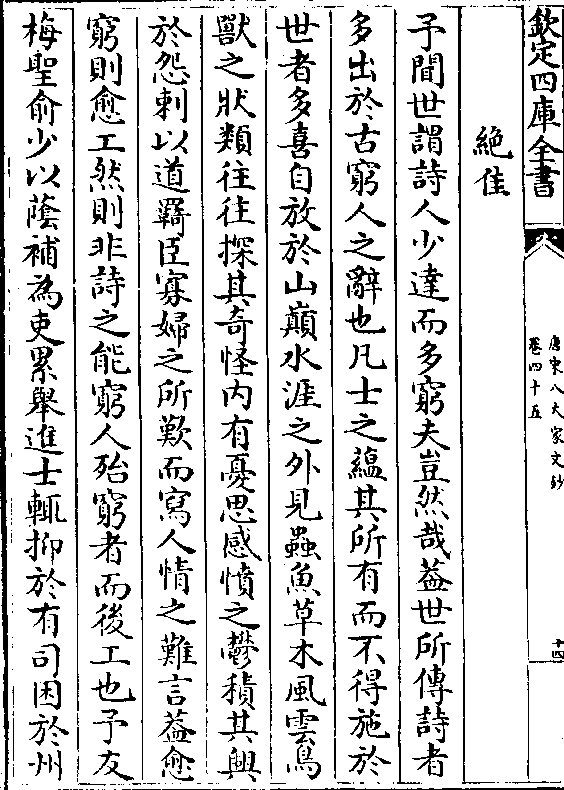 欽定四庫全書
唐宋八大家文鈔
卷四十五
十四
絶佳
予聞世謂詩人少達而多窮夫豈然哉葢世所傳詩者
多出於古窮人之辭也凡士之蘊其所有而不得施於
世者多喜自放於山巔水涯之外見蟲魚草木風雲鳥
獸之狀類往往探其奇怪内有憂思感憤之鬱積其興
於怨刺以道羇臣寡婦之所歎而寫人情之難言葢愈
窮則愈工然則非詩之能窮人殆窮者而後工也予友
梅聖俞少以蔭補為吏累舉進士輒抑於有司困於州